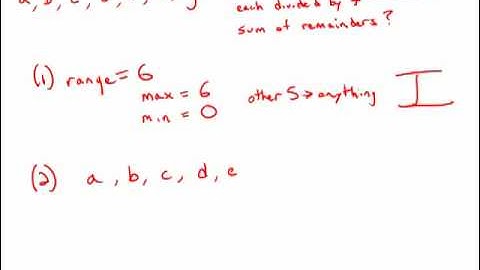 each divided by 7
sum of remainders?
(1) range = 6
max = 6
min = 0
other 5 → anything
I
(2) a, b, c, d, e